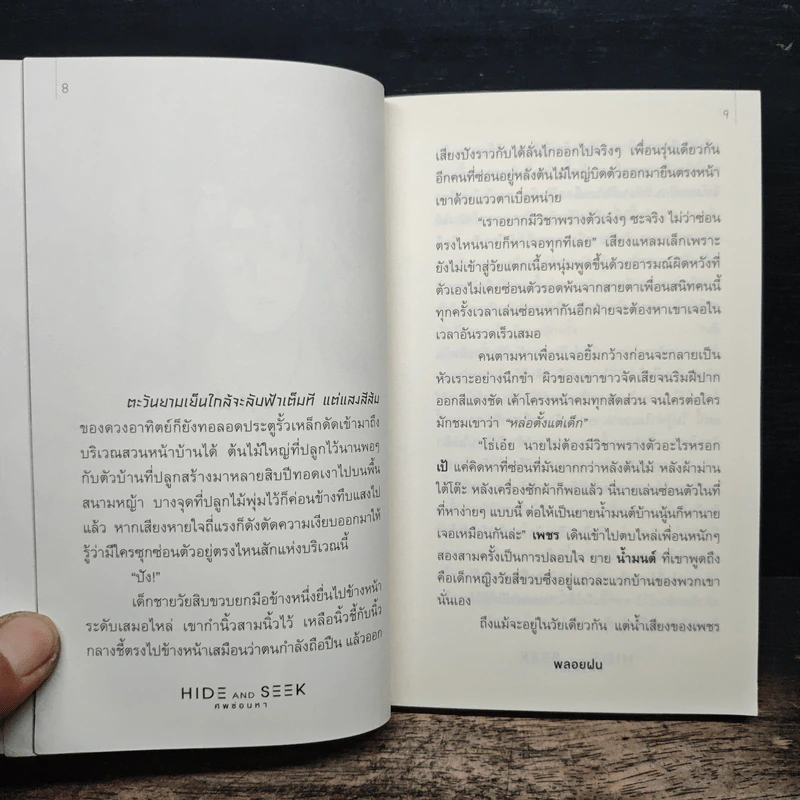 8
ตะวันยามเย็นใกล้จะลับฟ้าเต็มที แต่แสงสีส้ม
ของดวงอาทิตย์ก็ยังทอลอดประตูรั้วเหล็กดัดเข้ามาถึง
บริเวณสวนหน้าบ้านได้ ต้นไม้ใหญ่ที่ปลูกไว้นานพอๆ
กับตัวบ้านที่ปลูกสร้างมาหลายสิบปีทอดเงาไปบนพื้น
สนามหญ้า บางจุดที่ปลูกไม้พุ่มไว้ก็ค่อนข้างทึบแสงไป
แล้ว หากเสียงหายใจถี่แรงก็ดังตัดความเงียบออกมาให้
รู้ว่ามีใครซุกซ่อนตัวอยู่ตรงไหนสักแห่งบริเวณนี้
“ปัง!”
เด็กชายวัยสิบขวบยกมือข้างหนึ่งยื่นไปข้างหน้า
ระดับเสมอไหล่ เขากำนิ้วสามนิ้วไว้ เหลือนิ้วชี้กับนิ้ว
กลางชี้ตรงไปข้างหน้าเสมือนว่าตนกำลังถือปืน แล้วออก
HIDE AND SEEK
ศพซ่อนหา
9
เสียงปังราวกับได้ลั่นไกออกไปจริงๆ เพื่อนรุ่นเดียวกัน
อีกคนที่ซ่อนอยู่หลังต้นไม้ใหญ่บิดตัวออกมายืนตรงหน้า
เขาด้วยแววตาเบื่อหน่าย
“เราอยากมีวิชาพรางตัวเจ๋งๆ ซะจริง ไม่ว่าซ่อน
ตรงไหนนายก็หาเจอทุกทีเลย” เสียงแหลมเล็กเพราะ
ยังไม่เข้าสู่วัยแตกเนื้อหนุ่มพูดขึ้นด้วยอารมณ์ผิดหวังที่
ตัวเองไม่เคยซ่อนตัวรอดพ้นจากสายตาเพื่อนสนิทคนนี้
ทุกครั้งเวลาเล่นซ่อนหากันอีกฝ่ายจะต้องหาเขาเจอใน
เวลาอันรวดเร็วเสมอ
คนตามหาเพื่อนเจอยิ้มกว้างก่อนจะกลายเป็น
หัวเราะอย่างนึกขำ ผิวของเขาขาวจัดเสียจนริมฝีปาก
ออกสีแดงชัด เค้าโครงหน้าคมทุกสัดส่วน จนใครต่อใคร
มักชมเขาว่า “หล่อตั้งแต่เด็ก”
“โธ่เอ๋ย นายไม่ต้องมีวิชาพรางตัวอะไรหรอก
เป้ แค่คิดหาที่ซ่อนที่มันยากกว่าหลังต้นไม้ หลังผ้าม่าน
ใต้โต๊ะ หลังเครื่องซักผ้าก็พอแล้ว นี่นายเล่นซ่อนตัวในที่
ที่หาง่ายๆ แบบนี้ ต่อให้เป็นยายน้ำมนต์บ้านนู้นก็หานาย
เจอเหมือนกันล่ะ” เพชร เดินเข้าไปตบไหล่เพื่อนหนักๆ
สองสามครั้งเป็นการปลอบใจ ยาย น้ำมนต์ ที่เขาพูดถึง
คือเด็กหญิงวัยสี่ขวบซึ่งอยู่แถวละแวกบ้านของพวกเขา
นั่นเอง
ถึงแม้จะอยู่ในวัยเดียวกัน แต่น้ำเสียงของเพชร
พลอยฝน